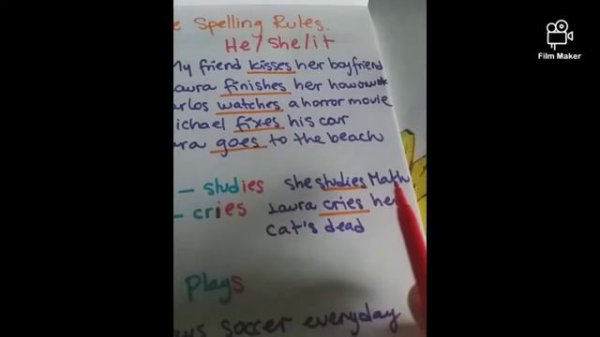 e Spelling Rules.
He/she/it
My friend kisses her boyfriend
aura finishes her
arlos watches a horror movie
ichael fixes his car
ara goes to the beach
- studies she studies Math
- cries Laura cries her
cat's dead
Plays
ays soccer everyday
Film Maker